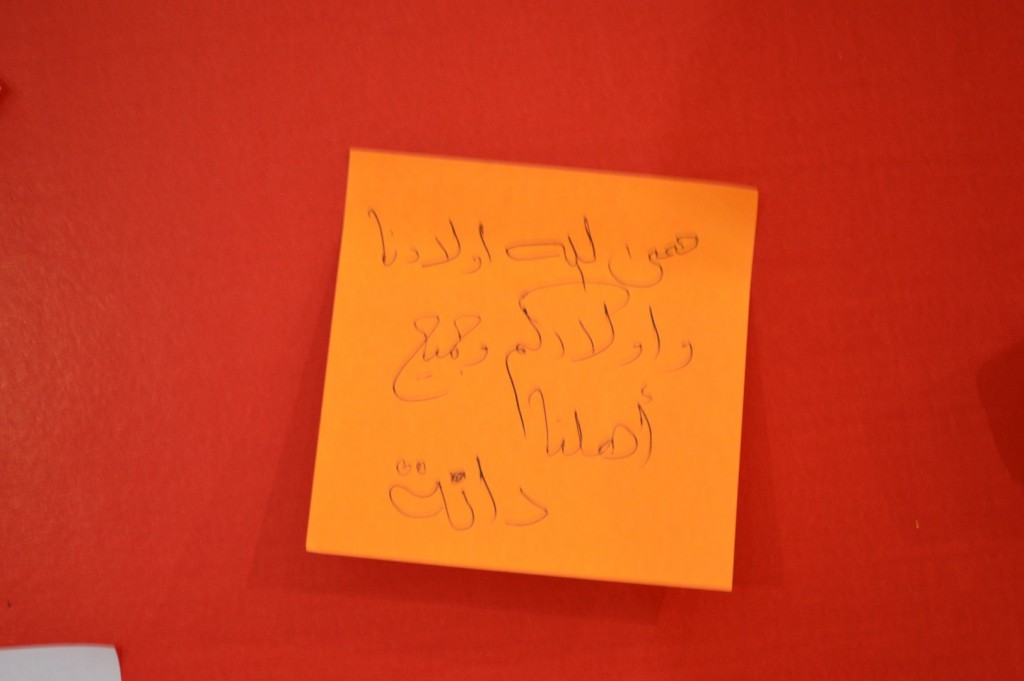 حمى الله اولادنا
و اولادكم وجميع
أهلنا
دانة